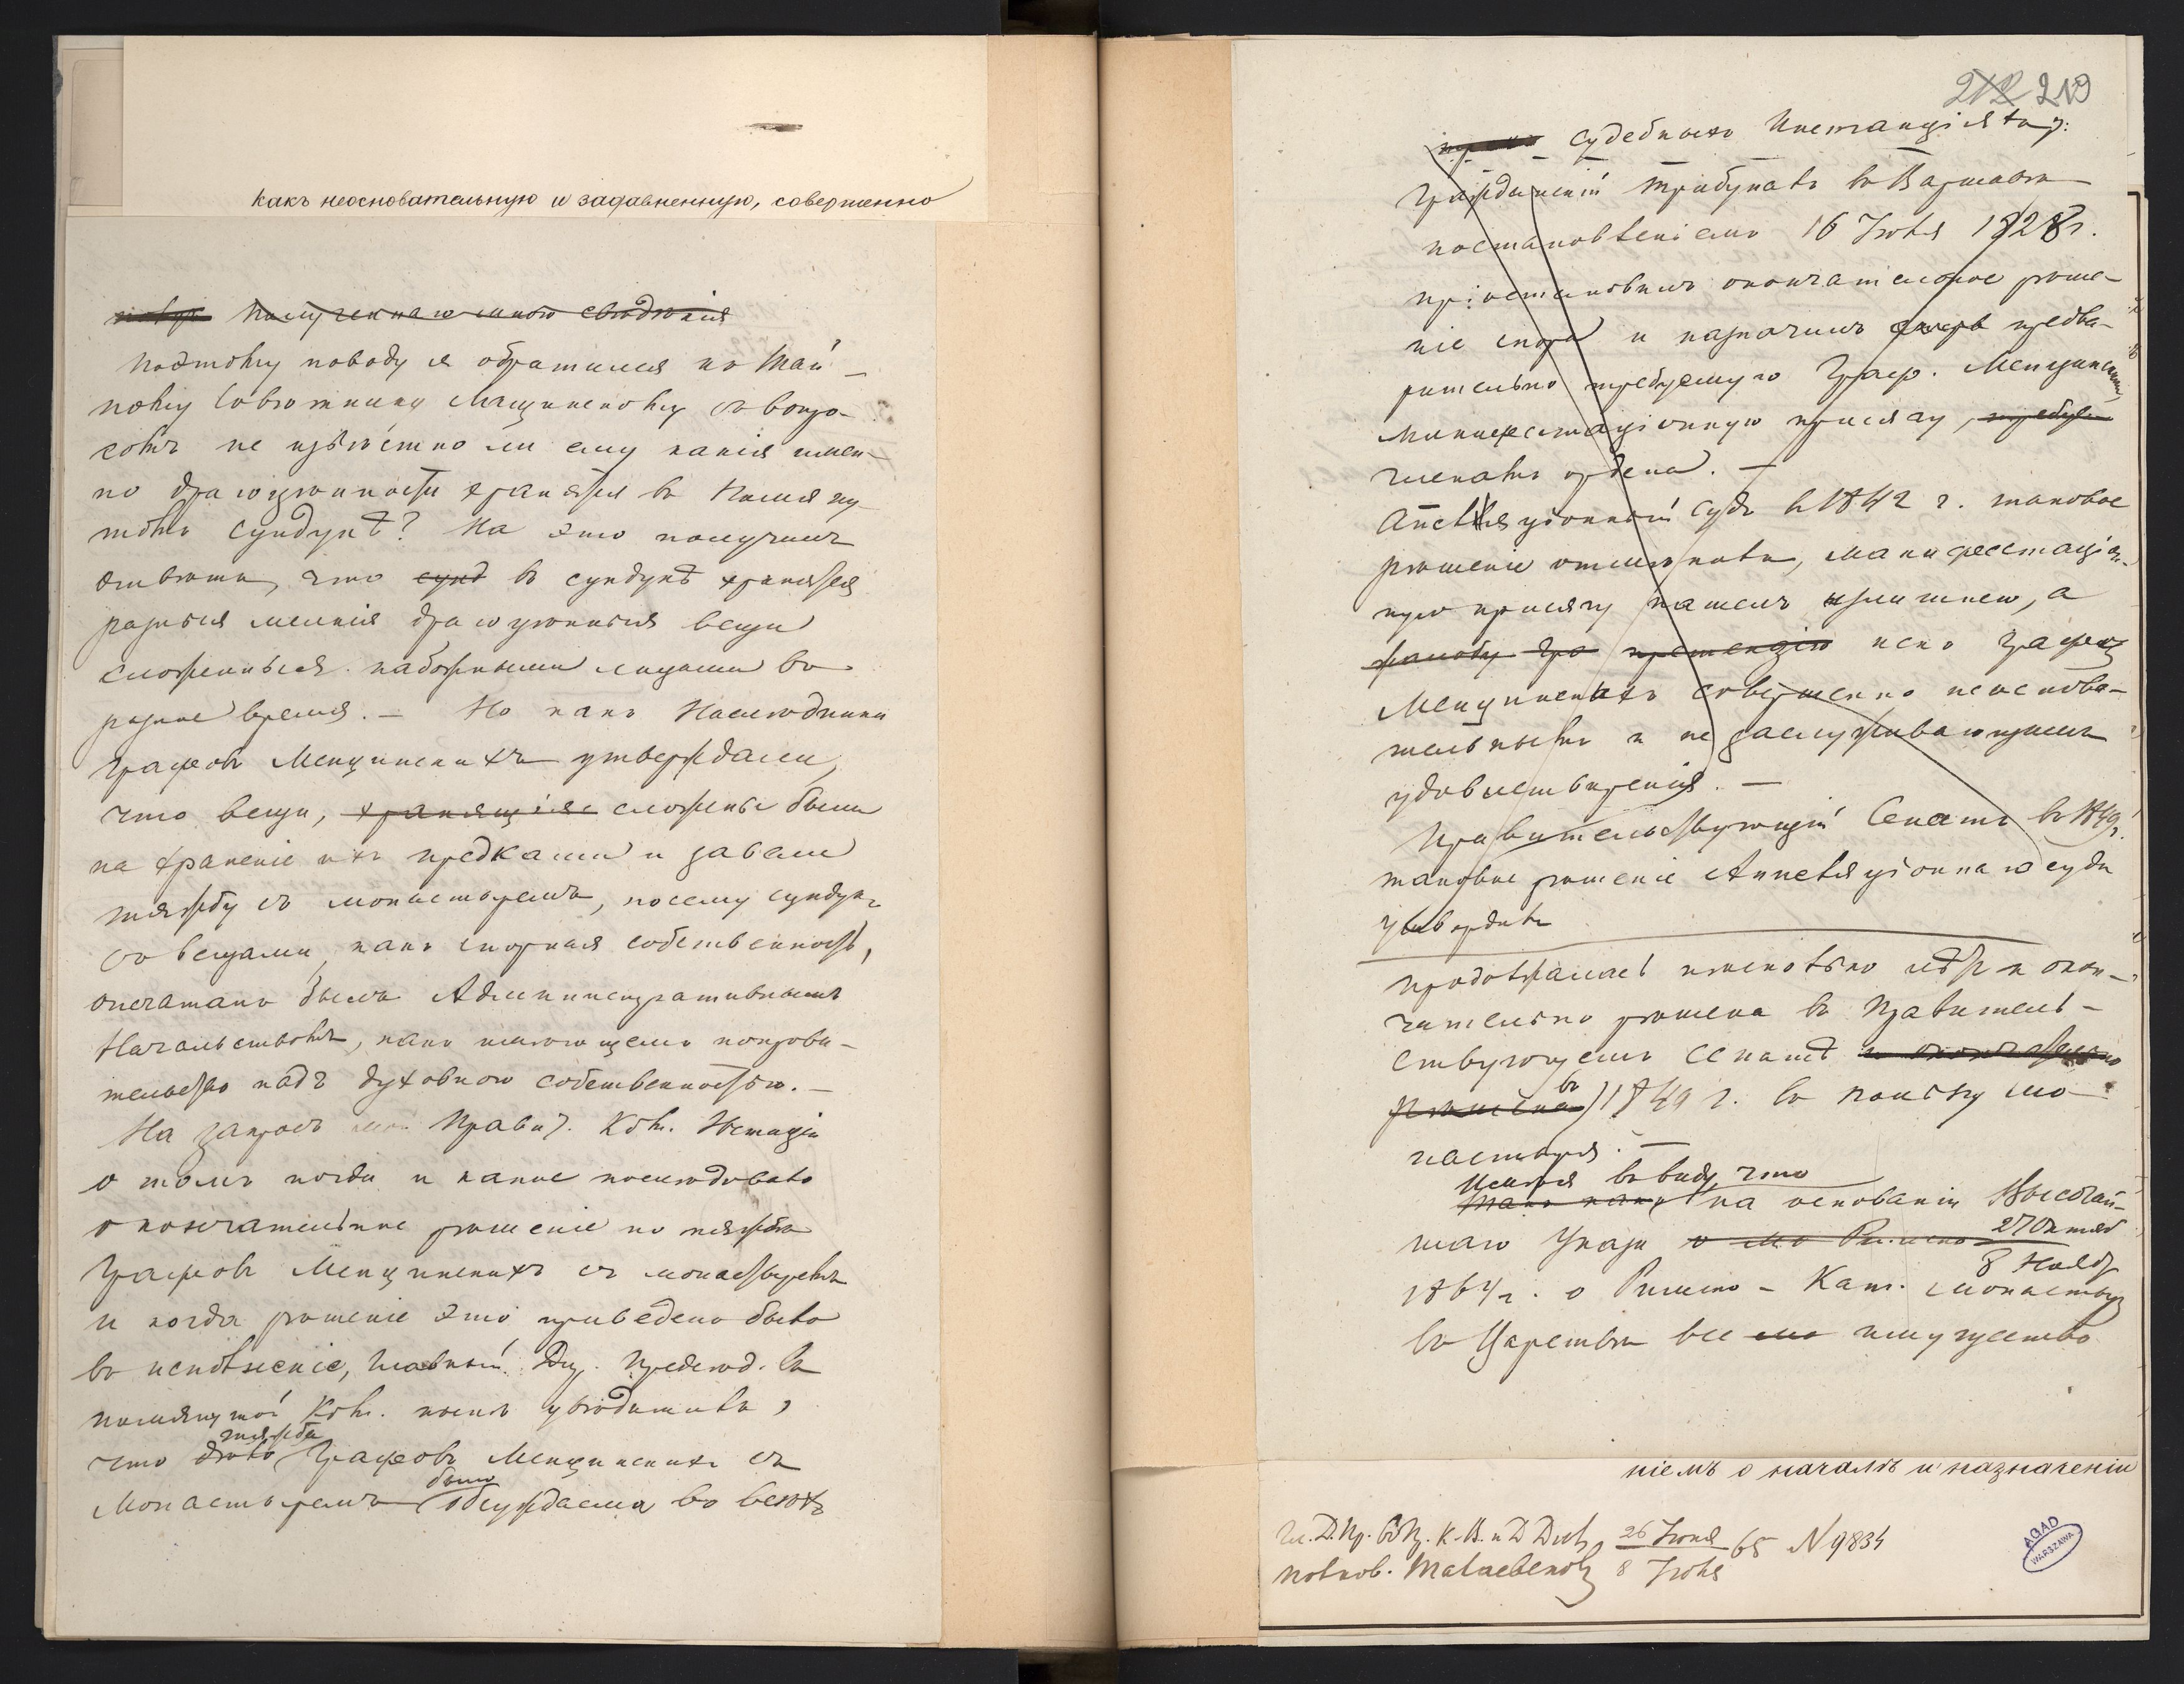 какъ неосновательную и задавненную, совершенно
полученнаго мною сведѣнія
Поэтому поводу я обратился къ Тай-
ному Совѣтнику Мацкинскому съ вопро-
сомъ не извѣстно ли ему какія имен-
но драгоцѣнности хранятся въ помяну-
томъ сундукѣ? На это получилъ
отвѣтъ, что сунд въ сундукѣ хранятся
разныя мелкія драгоцѣнныя вещи
сложенныя набожными лицами въ
разное время. — Но какъ Наслѣдники
Графовъ Менцинскихъ утверждали,
что вещи, хранящіяс сложены были
на храненіе ихъ предками и завели
тяжбу съ монастыремъ, посему сундукъ
со вещами, какъ спорная собственность,
опечатанъ былъ Административнымъ
Начальствомъ, какъ имеющемъ покрови-
тельство надъ духовною собственностью. —
На запросъ мой Правит. Ком. Юстиціи
о томъ когда и какое послѣдовало
окончательное рѣшеніе по тяжбѣ
Графовъ Менцинскихъ съ монастыремъ
и когда рѣшеніе это приведено было
въ исполненіе, Главный Дир. Предсѣд. въ
помянутой Ком. меня увѣдомилъ,
тяжба
что дѣло Графовъ Менцинскихъ съ
была
Монастыремъ обсуждаема во всѣхъ
212 219
судебныхъ Инстанціяхъ:
Гражданскій трибуналъ въ Варшавѣ
постановленіемъ 16 Іюля 1828 г.
пріостановилъ окончательное рѣше-
ніе спора и назначилъ предва-
рительно требуемую Граф. Менцинскими
манифестаціонную присягу, требуем
членамъ ордена. —
Апелляціонный Судъ въ 1842 г. таковое
рѣшеніе отмѣнилъ, манифестаціон-
ную присягу нашелъ излишнею, а
жалобу Гра претензію искъ Графовъ
Менцинскихъ совершенно неоснова-
тельнымъ и не заслуживающимъ
удовлетворенія. —
Правительствующій Сенатъ въ 1849 г.
таковое рѣшеніе Апелляціоннаго суда
утвердилъ
продолжалась нѣсколько лѣтъ и окон-
чательно рѣшена въ Правитель-
ствующемъ Сенатѣ и окончательно
рѣшена въ 1849 г. въ пользу мо-
настыря. —
Имѣя въ виду, что
Такъ какъ на основаніи Высочай-
27 Октяб
шаго Указа
8 Нояб
1864 г. о Римско-Кат. монастыр
въ Царствѣ все имущество
ніемъ о началѣ и назначеніи
Гл. Д. Пр. 26 Іюня
65 N 9834
8 Іюля
AGAD
WARSZAWA